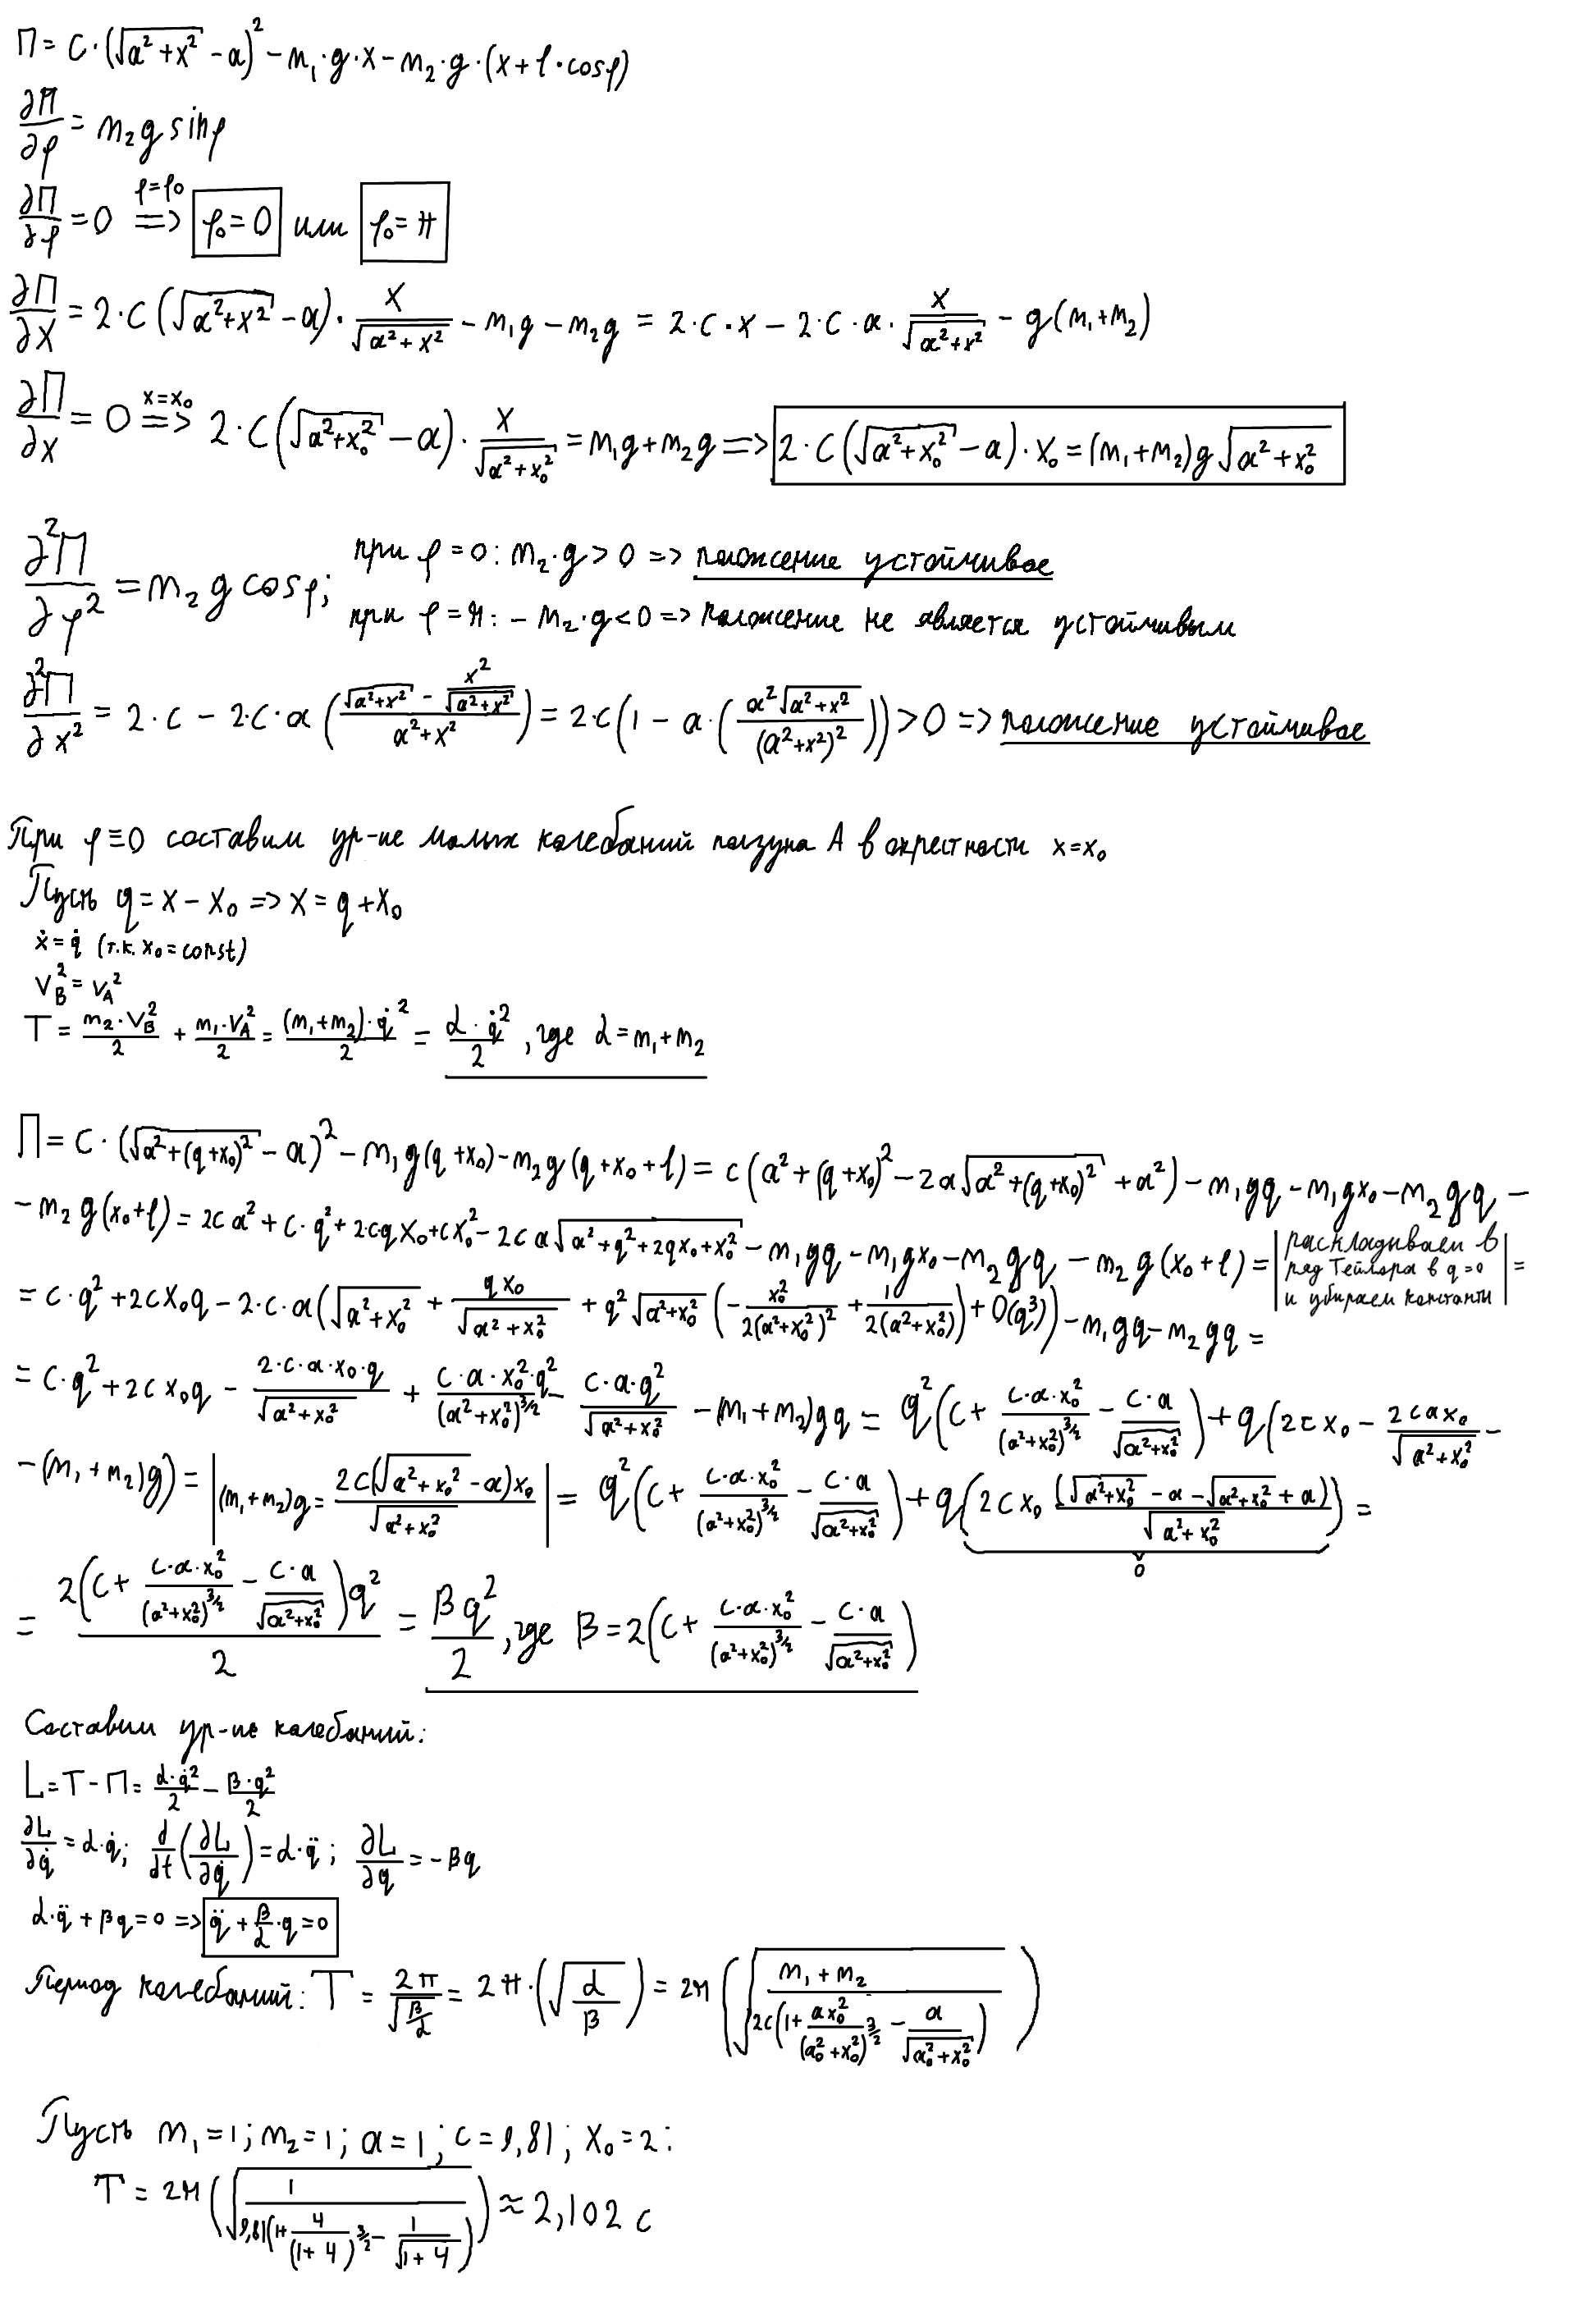 П = c·(√(a²+x²) − a)² − m₁·g·x − m₂·g·(x + l·cosφ)
∂П/∂φ = m₂g sinφ
∂П/∂φ = 0 =(φ=φ₀)=> φ₀ = 0 или φ₀ = π
∂П/∂x = 2·c(√(a²+x²) − a)·x/√(a²+x²) − m₁g − m₂g = 2·c·x − 2·c·a·x/√(a²+x²) − g(m₁+m₂)
∂П/∂x = 0 =(x=x₀)=> 2·c(√(a²+x₀²) − a)·x/√(a²+x₀²) = m₁g + m₂g => 2·c(√(a²+x₀²) − a)·x₀ = (m₁+m₂)g√(a²+x₀²)
∂²П/∂φ² = m₂g cosφ; при φ = 0: m₂·g > 0 => положение устойчивое
при φ = π: − m₂·g < 0 => положение не является устойчивым
∂²П/∂x² = 2·c − 2·c·a((√(a²+x²) − x²/√(a²+x²))/(a²+x²)) = 2·c(1 − a·(a²√(a²+x²)/(a²+x²)²)) > 0 => положение устойчивое
При φ ≡ 0 составим ур-ие малых колебаний ползуна A в окрестности x = x₀
Пусть q = x − x₀ => x = q + x₀
ẋ = q̇ (т.к. x₀ = const)
V_B² = V_A²
T = m₂·V_B²/2 + m₁·V_A²/2 = (m₁+m₂)·q̇²/2 = α·q̇²/2, где α = m₁+m₂
П = c·(√(a²+(q+x₀)²) − a)² − m₁g(q+x₀) − m₂g(q+x₀+l) = c(a²+(q+x₀)² − 2a√(a²+(q+x₀)²) + a²) − m₁gq − m₁gx₀ − m₂gq −
− m₂g(x₀+l) = 2ca² + c·q² + 2·c·qx₀ + cx₀² − 2ca√(a²+q²+2qx₀+x₀²) − m₁gq − m₁gx₀ − m₂gq − m₂g(x₀+l) = | раскладываем в ряд Тейлора в q=0 и убираем константы | =
= c·q² + 2cx₀q − 2·c·a(√(a²+x₀²) + qx₀/√(a²+x₀²) + q²√(a²+x₀²)(−x₀²/(2(a²+x₀²)²) + 1/(2(a²+x₀²))) + O(q³)) − m₁gq − m₂gq =
= c·q² + 2cx₀q − 2·c·a·x₀·q/√(a²+x₀²) + c·a·x₀²·q²/(a²+x₀²)^(3/2) − c·a·q²/√(a²+x₀²) − (m₁+m₂)gq = q²(c + c·a·x₀²/(a²+x₀²)^(3/2) − c·a/√(a²+x₀²)) + q(2cx₀ − 2cax₀/√(a²+x₀²) −
− (m₁+m₂)g) = | (m₁+m₂)g = 2c(√(a²+x₀²) − a)x₀/√(a²+x₀²) | = q²(c + c·a·x₀²/(a²+x₀²)^(3/2) − c·a/√(a²+x₀²)) + q(2cx₀ (√(a²+x₀²) − a − √(a²+x₀²) + a)/√(a²+x₀²)) =
0
= 2(c + c·a·x₀²/(a²+x₀²)^(3/2) − c·a/√(a²+x₀²))q²/2 = βq²/2, где β = 2(c + c·a·x₀²/(a²+x₀²)^(3/2) − c·a/√(a²+x₀²))
Составим ур-ие колебаний:
L = T − П = α·q̇²/2 − β·q²/2
∂L/∂q̇ = α·q̇; d/dt(∂L/∂q̇) = α·q̈; ∂L/∂q = −βq
α·q̈ + βq = 0 => q̈ + β/α·q = 0
Период колебаний: T = 2π/√(β/α) = 2π·(√(α/β)) = 2π(√((m₁+m₂)/(2c(1 + ax₀²/(a₀²+x₀²)^(3/2) − a/√(a₀²+x₀²)))))
Пусть m₁ = 1; m₂ = 1; a = 1; c = 9,81; x₀ = 2:
T = 2π(√(1/(9,81(1 + 4/(1+4)^(3/2) − 1/√(1+4))))) ≈ 2,102 с